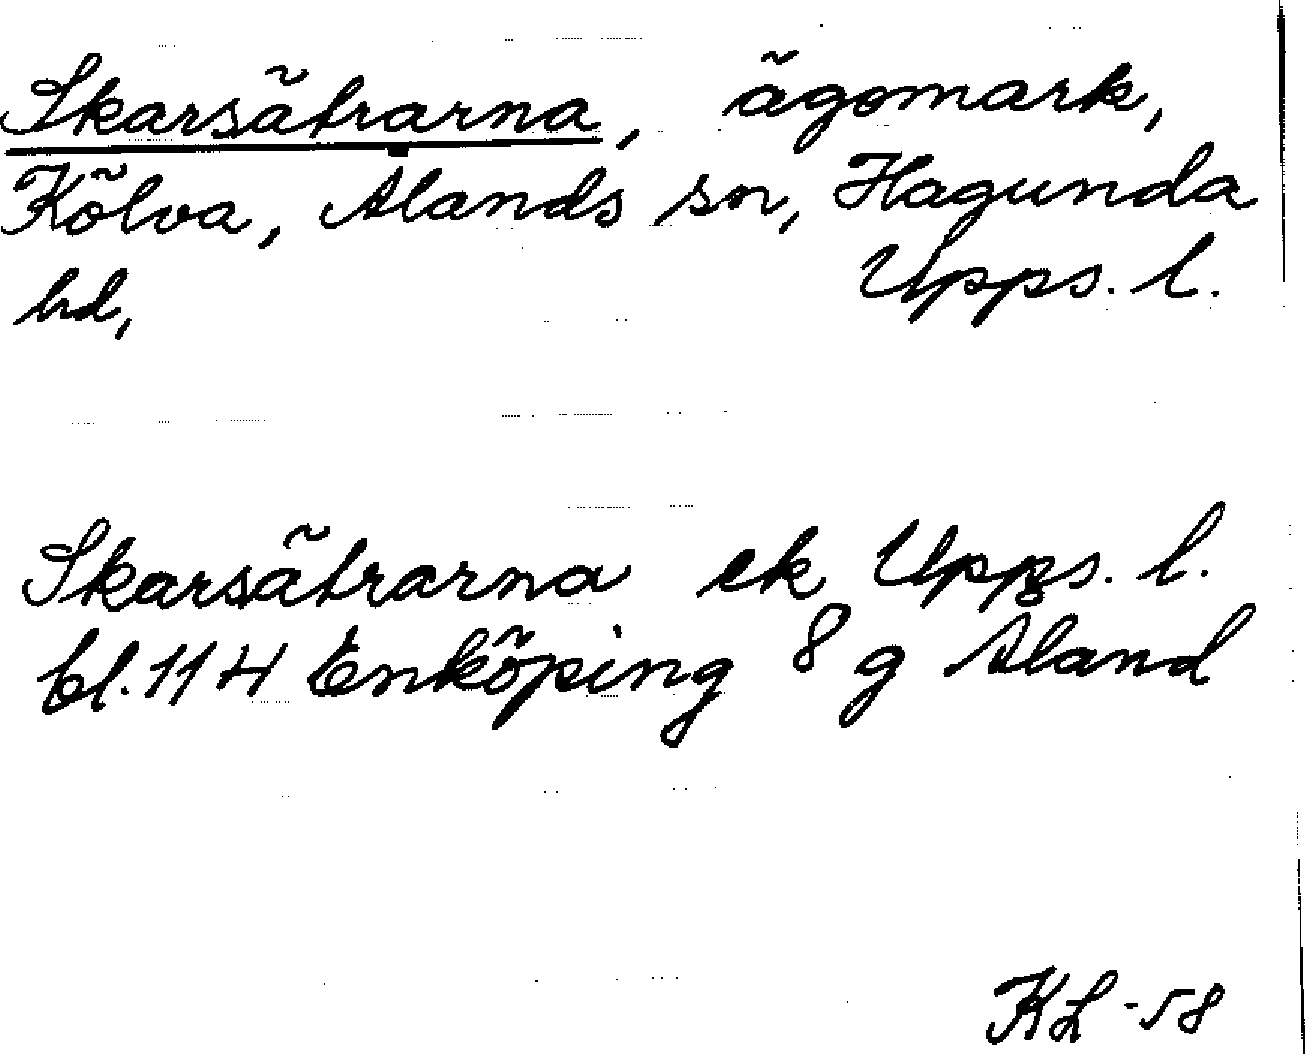 Skarsätrarna, ägomark,
Kölva, Ålands sn, Hagunda
hd, Upps. l.
Skarsätrarna ek Upps. l.
bl. 114 Enköping 8 g Åland
KL -58